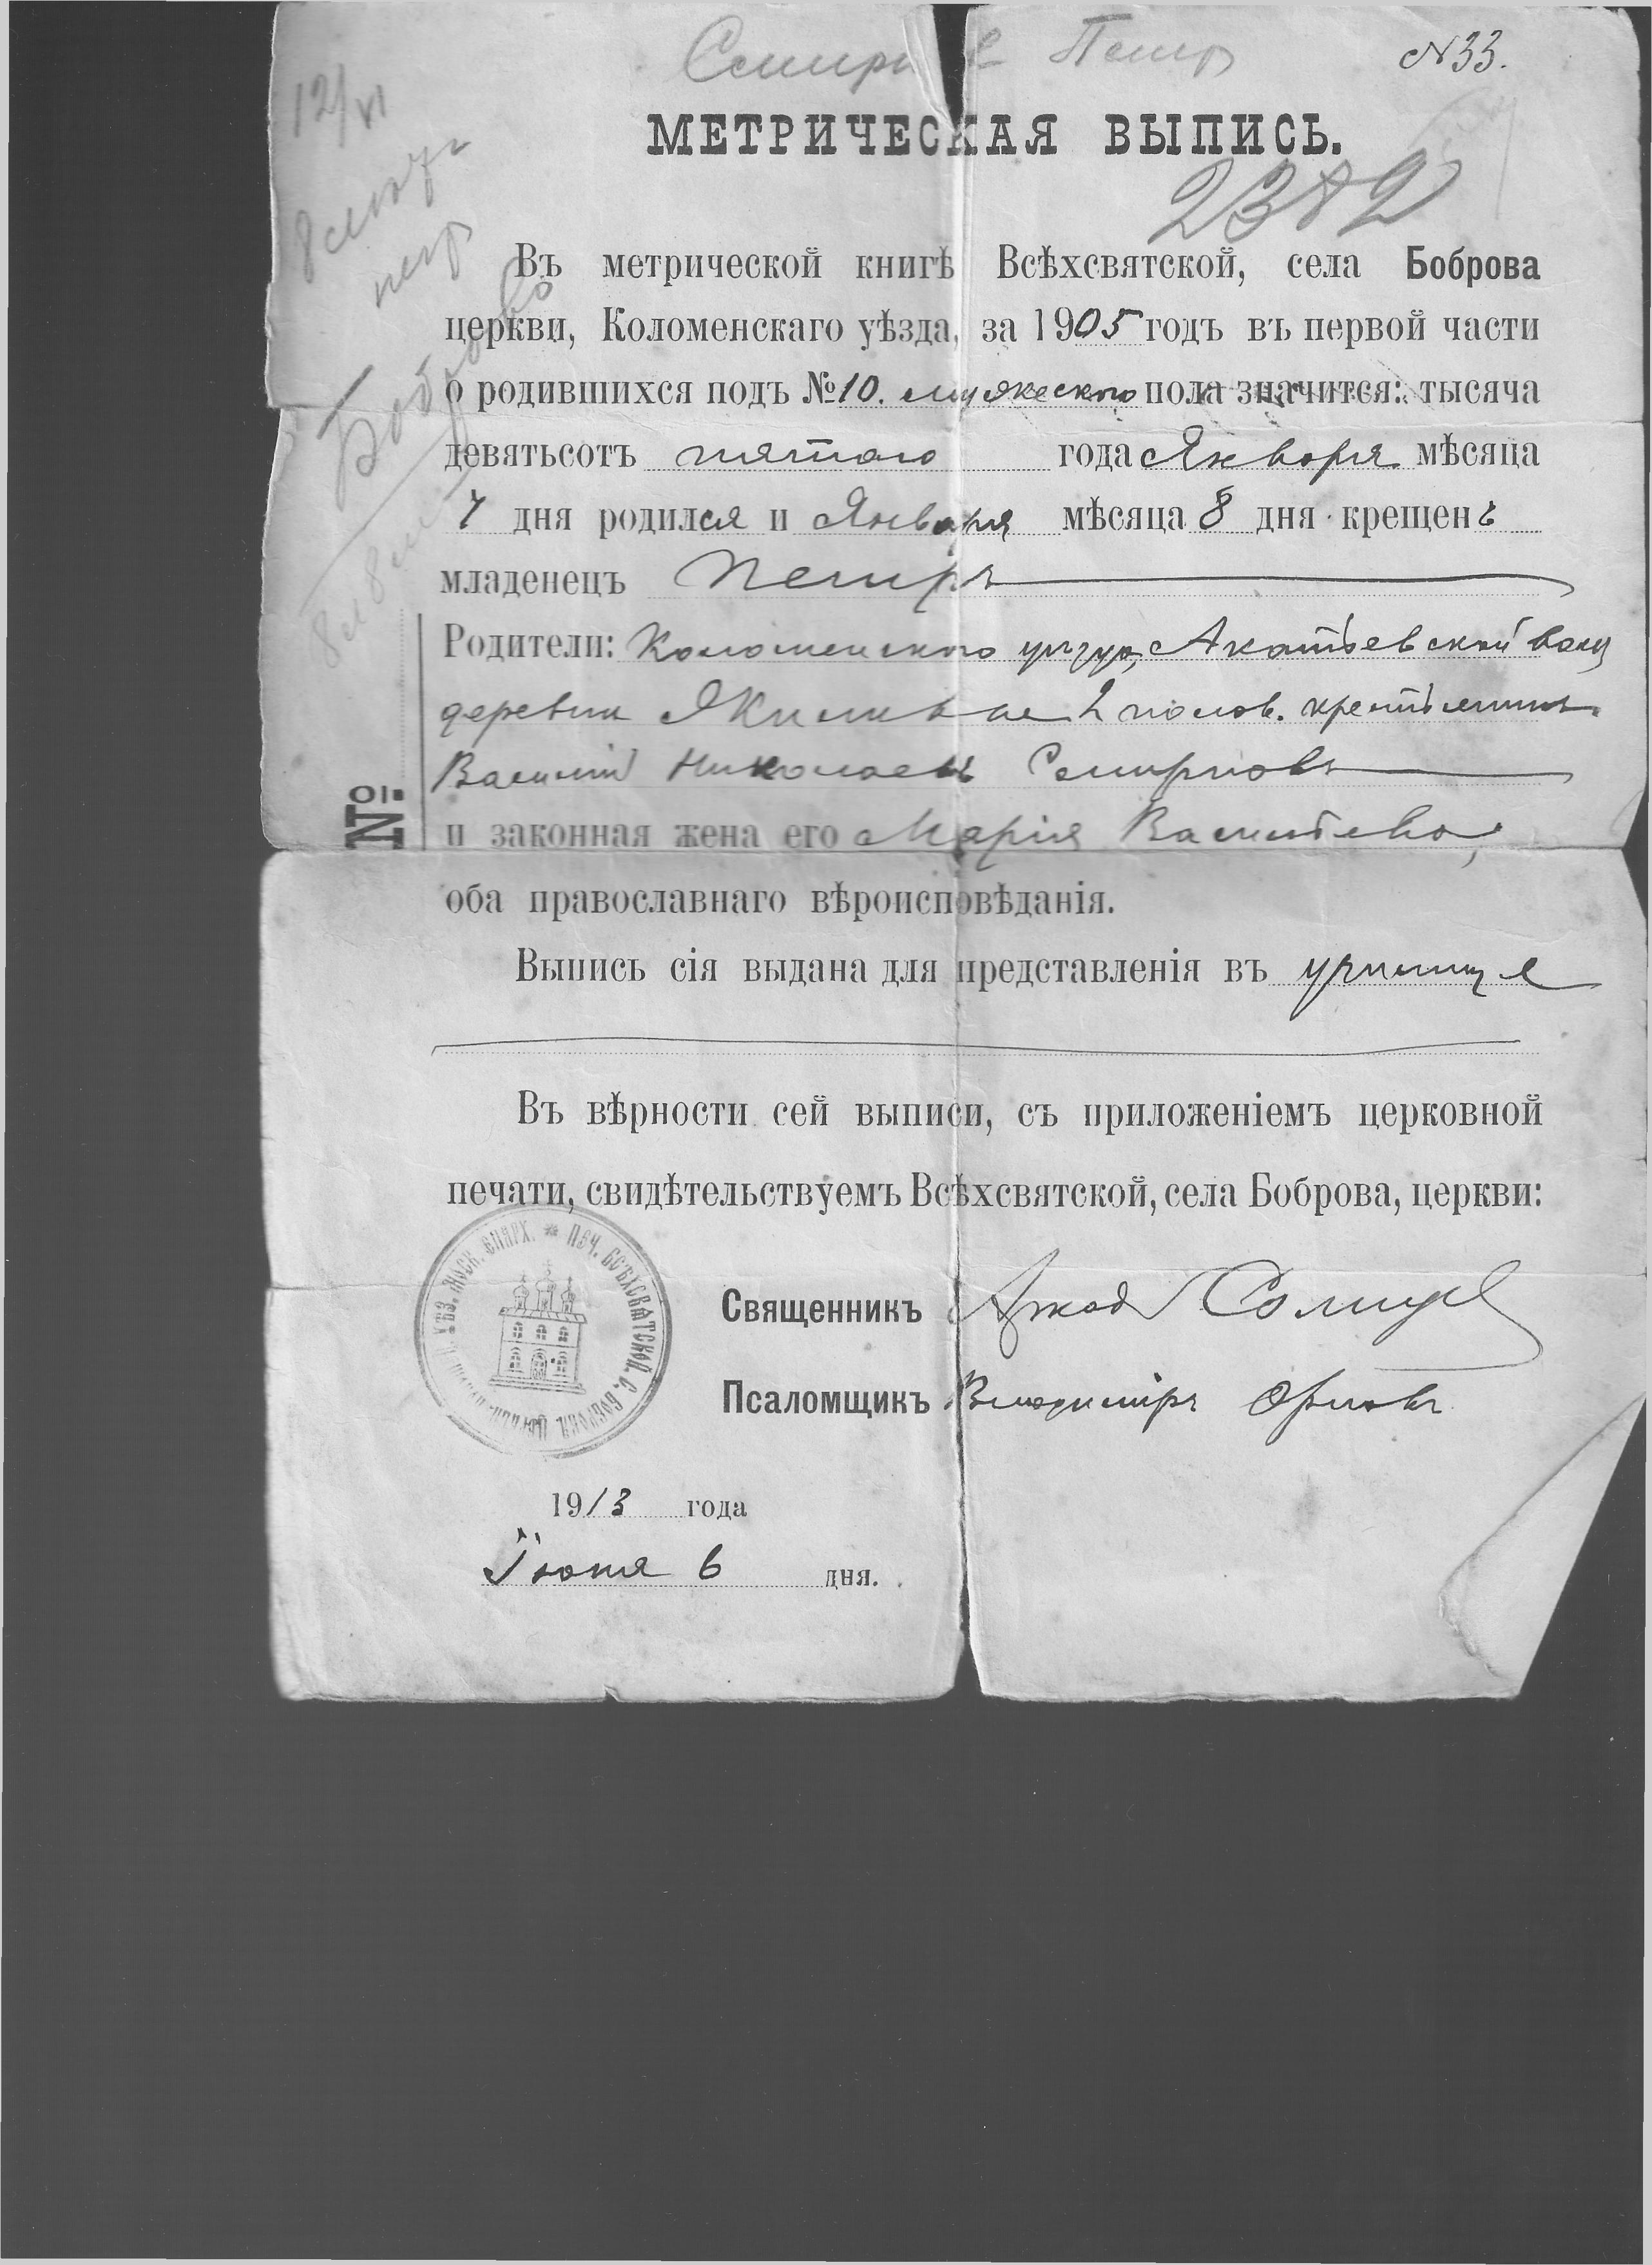 №33.
МЕТРИЧЕСКАЯ ВЫПИСЬ.
2382
12/VI
Въ метрической книгѣ Всѣхсвятской, села Боброва
церкви, Коломенскаго уѣзда, за 1905 годъ въ первой части
о родившихся подъ №10. мужескаго пола значится: тысяча
девятьсотъ пятаго года Января мѣсяца
7 дня родился и Января мѣсяца 8 дня крещенъ
младенецъ Петръ
Родители: Коломенскаго уѣзда, Акатьевской вол.
деревни 2 полов. крестьянинъ
Василій Николаевъ Смирновъ
и законная жена его Марія Васильева,
№:
оба православнаго вѣроисповѣданія.
Выпись сія выдана для представленія въ училище
Въ вѣрности сей выписи, съ приложеніемъ церковной
печати, свидѣтельствуемъ Всѣхсвятской, села Боброва, церкви:
ПЕЧ. ВСѢХСВЯТСКОЙ С. БОБРОВА ЦЕРКВИ УѢЗ. МОСК. ЕПАРХ.
Священникъ Солнцев
Псаломщикъ Владиміръ Орловъ
1913 года
Іюня 6 дня.